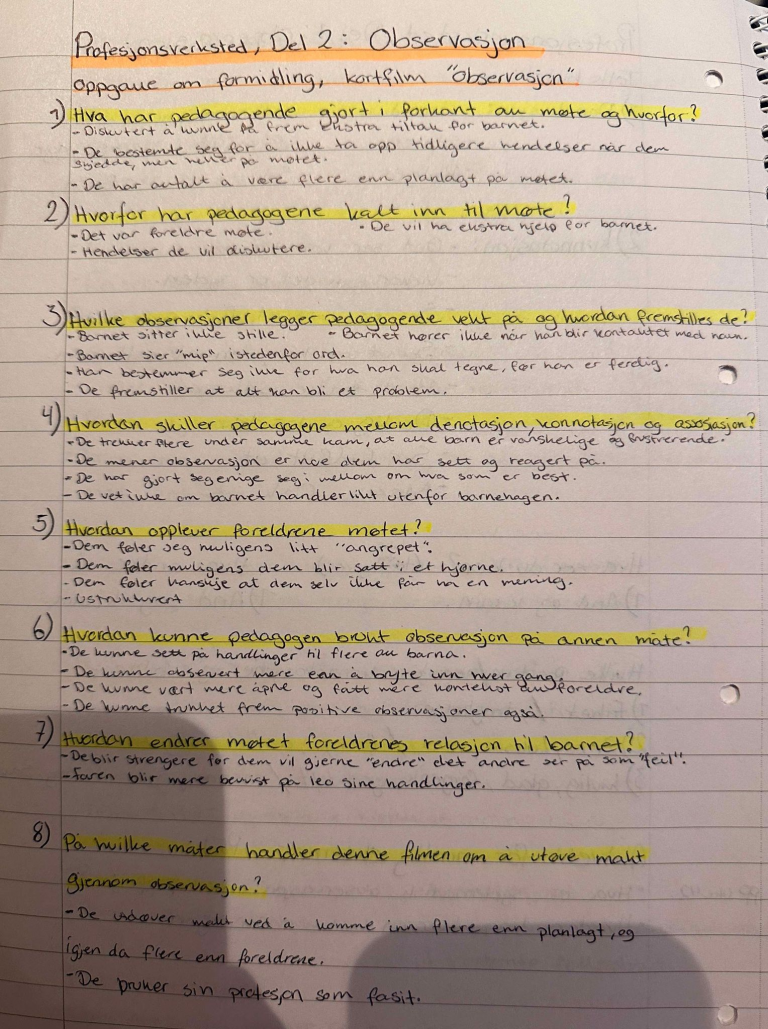 Profesjonsverksted, Del 2: Observasjon
Oppgave om formidling, kortfilm "Observasjon"
1) Hva har pedagogende gjort i forkant av møte og hvorfor?
- Diskutert å kunne få frem ekstra tiltak for barnet.
- De bestemte seg for å ikke ta opp tidligere hendelser når dem
skjedde, men heller på møtet.
- De har avtalt å være flere enn planlagt på møtet.
2) Hvorfor har pedagogene kalt inn til møte?
- Det var foreldre møte. - De vil ha ekstra hjelp for barnet.
- Hendelser de vil diskutere.
3) Hvilke observasjoner legger pedagogende vekt på og hvordan fremstilles de?
- Barnet sitter ikke stille. - Barnet hører ikke når han blir kontaktet med navn.
- Barnet sier "mip" istedenfor ord.
- Han bestemmer seg ikke for hva han skal tegne, før han er ferdig.
- De fremstiller at alt kan bli et problem.
4) Hvordan skiller pedagogene mellom denotasjon, konnotasjon og assosiasjon?
- De trekker flere under samme kam, at alle barn er vanskelige og frustrerende.
- De mener observasjon er noe dem har sett og reagert på.
- De har gjort seg enige seg i mellom om hva som er best.
- De vet ikke om barnet handler likt utenfor barnehagen.
5) Hvordan opplever foreldrene møtet?
- Dem føler seg muligens litt "angrepet".
- Dem føler muligens dem blir satt i et hjørne.
- Dem føler kanskje at dem selv ikke får ha en mening.
- Ustrukturert
6) Hvordan kunne pedagogen brukt observasjon på annen måte?
- De kunne sett på handlinger til flere av barna.
- De kunne observert mere enn å bryte inn hver gang.
- De kunne vært mere åpne og fått mere kontekst av foreldre.
- De kunne trukket frem positive observasjoner også.
7) Hvordan endrer møtet foreldrenes relasjon til barnet?
- De blir strengere for dem vil gjerne "endre" det andre ser på som "feil".
- Faren blir mere bevisst på leo sine handlinger.
8) På hvilke måter handler denne filmen om å utøve makt
gjennom observasjon?
- De utøver makt ved å komme inn flere enn planlagt, og
igjen da flere enn foreldrene.
- De bruker sin profesjon som fasit.